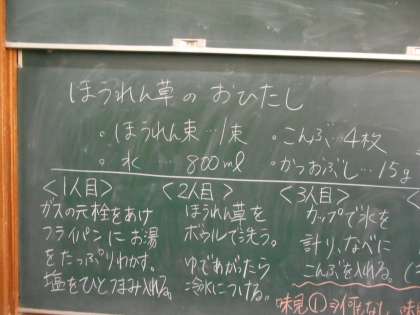 ほうれん草のおひたし
・ほうれん束…1束 ・こんぶ…4枚
・水 … 800ml ・かつおぶし…15g
<1人目>
ガスの元栓をあけ
フライパンにお湯
をたっぷりわかす。
塩をひとつまみ入れる。
<2人目>
ほうれん草を
ボウルで洗う。
ゆであがったら
冷水につける。
<3人目>
カップで水を
計り、なべに
こんぶを入れる。
味見①